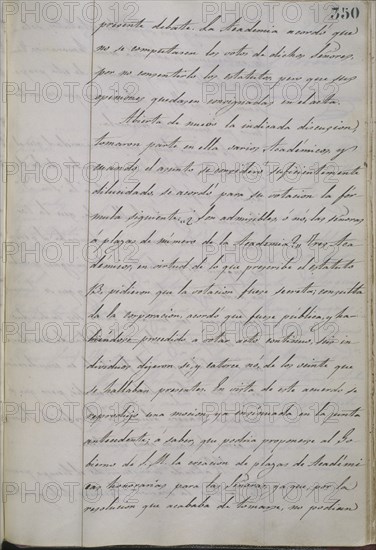 350
presente debate. La Academia acordó que
no se computasen los votos de dichos Señores,
por no consentirlo los estatutos, pero que sus
opiniones quedasen consignadas en el acta.
Abierta de nuevo la indicada discusion,
tomaron parte en ella varios Académicos, y
cuando el asunto se consideró suficientemente
dilucidado, se acordó para su votacion la fór-
mula siguiente: ¿Son admisibles ó no, las señoras
á plazas de número de la Academia? y tres Aca-
démicos, en virtud de lo que prescribe el estatuto
13, pidieron que la votacion fuese secreta; consulta-
da la corporacion, acordó que fuese publica, y ha-
biéndose procedido á votar acto contínuo, seis in-
dividuos dijeron sí, y catorce nó, de los veinte que
se hallaban presentes. En vista de este acuerdo se
reprodujo una mocion, ya enunciada en la junta
antecedente; á saber, que podria proponerse al Go-
bierno de S. M. la creacion de plazas de Académi-
cas honorarias para las Señoras, ya que, por la
resolucion que acababa de tomarse, no podian
PHOTO12